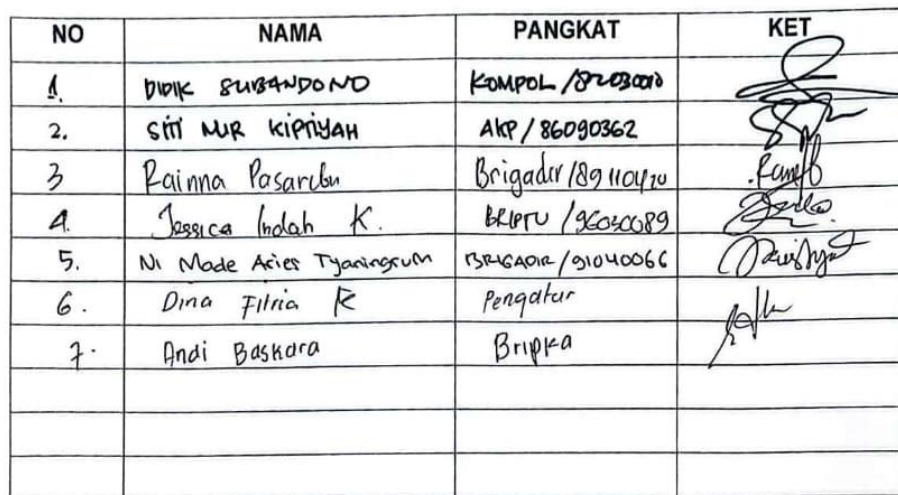 NO NAMA PANGKAT KET
1. DIDIK SUBANDONO KOMPOL /82030010
2. SITI NUR KIPTIYAH AKP / 86090362
3 Rainna Pasaribu Brigadir /89110420
4. Jessica Indah K. BRIPTU /96030089
5. Ni Made Aries Tyaningrum BRIGADIR /91040066
6. Dina Fitria R Pengatur
7. Andi Baskara Bripka